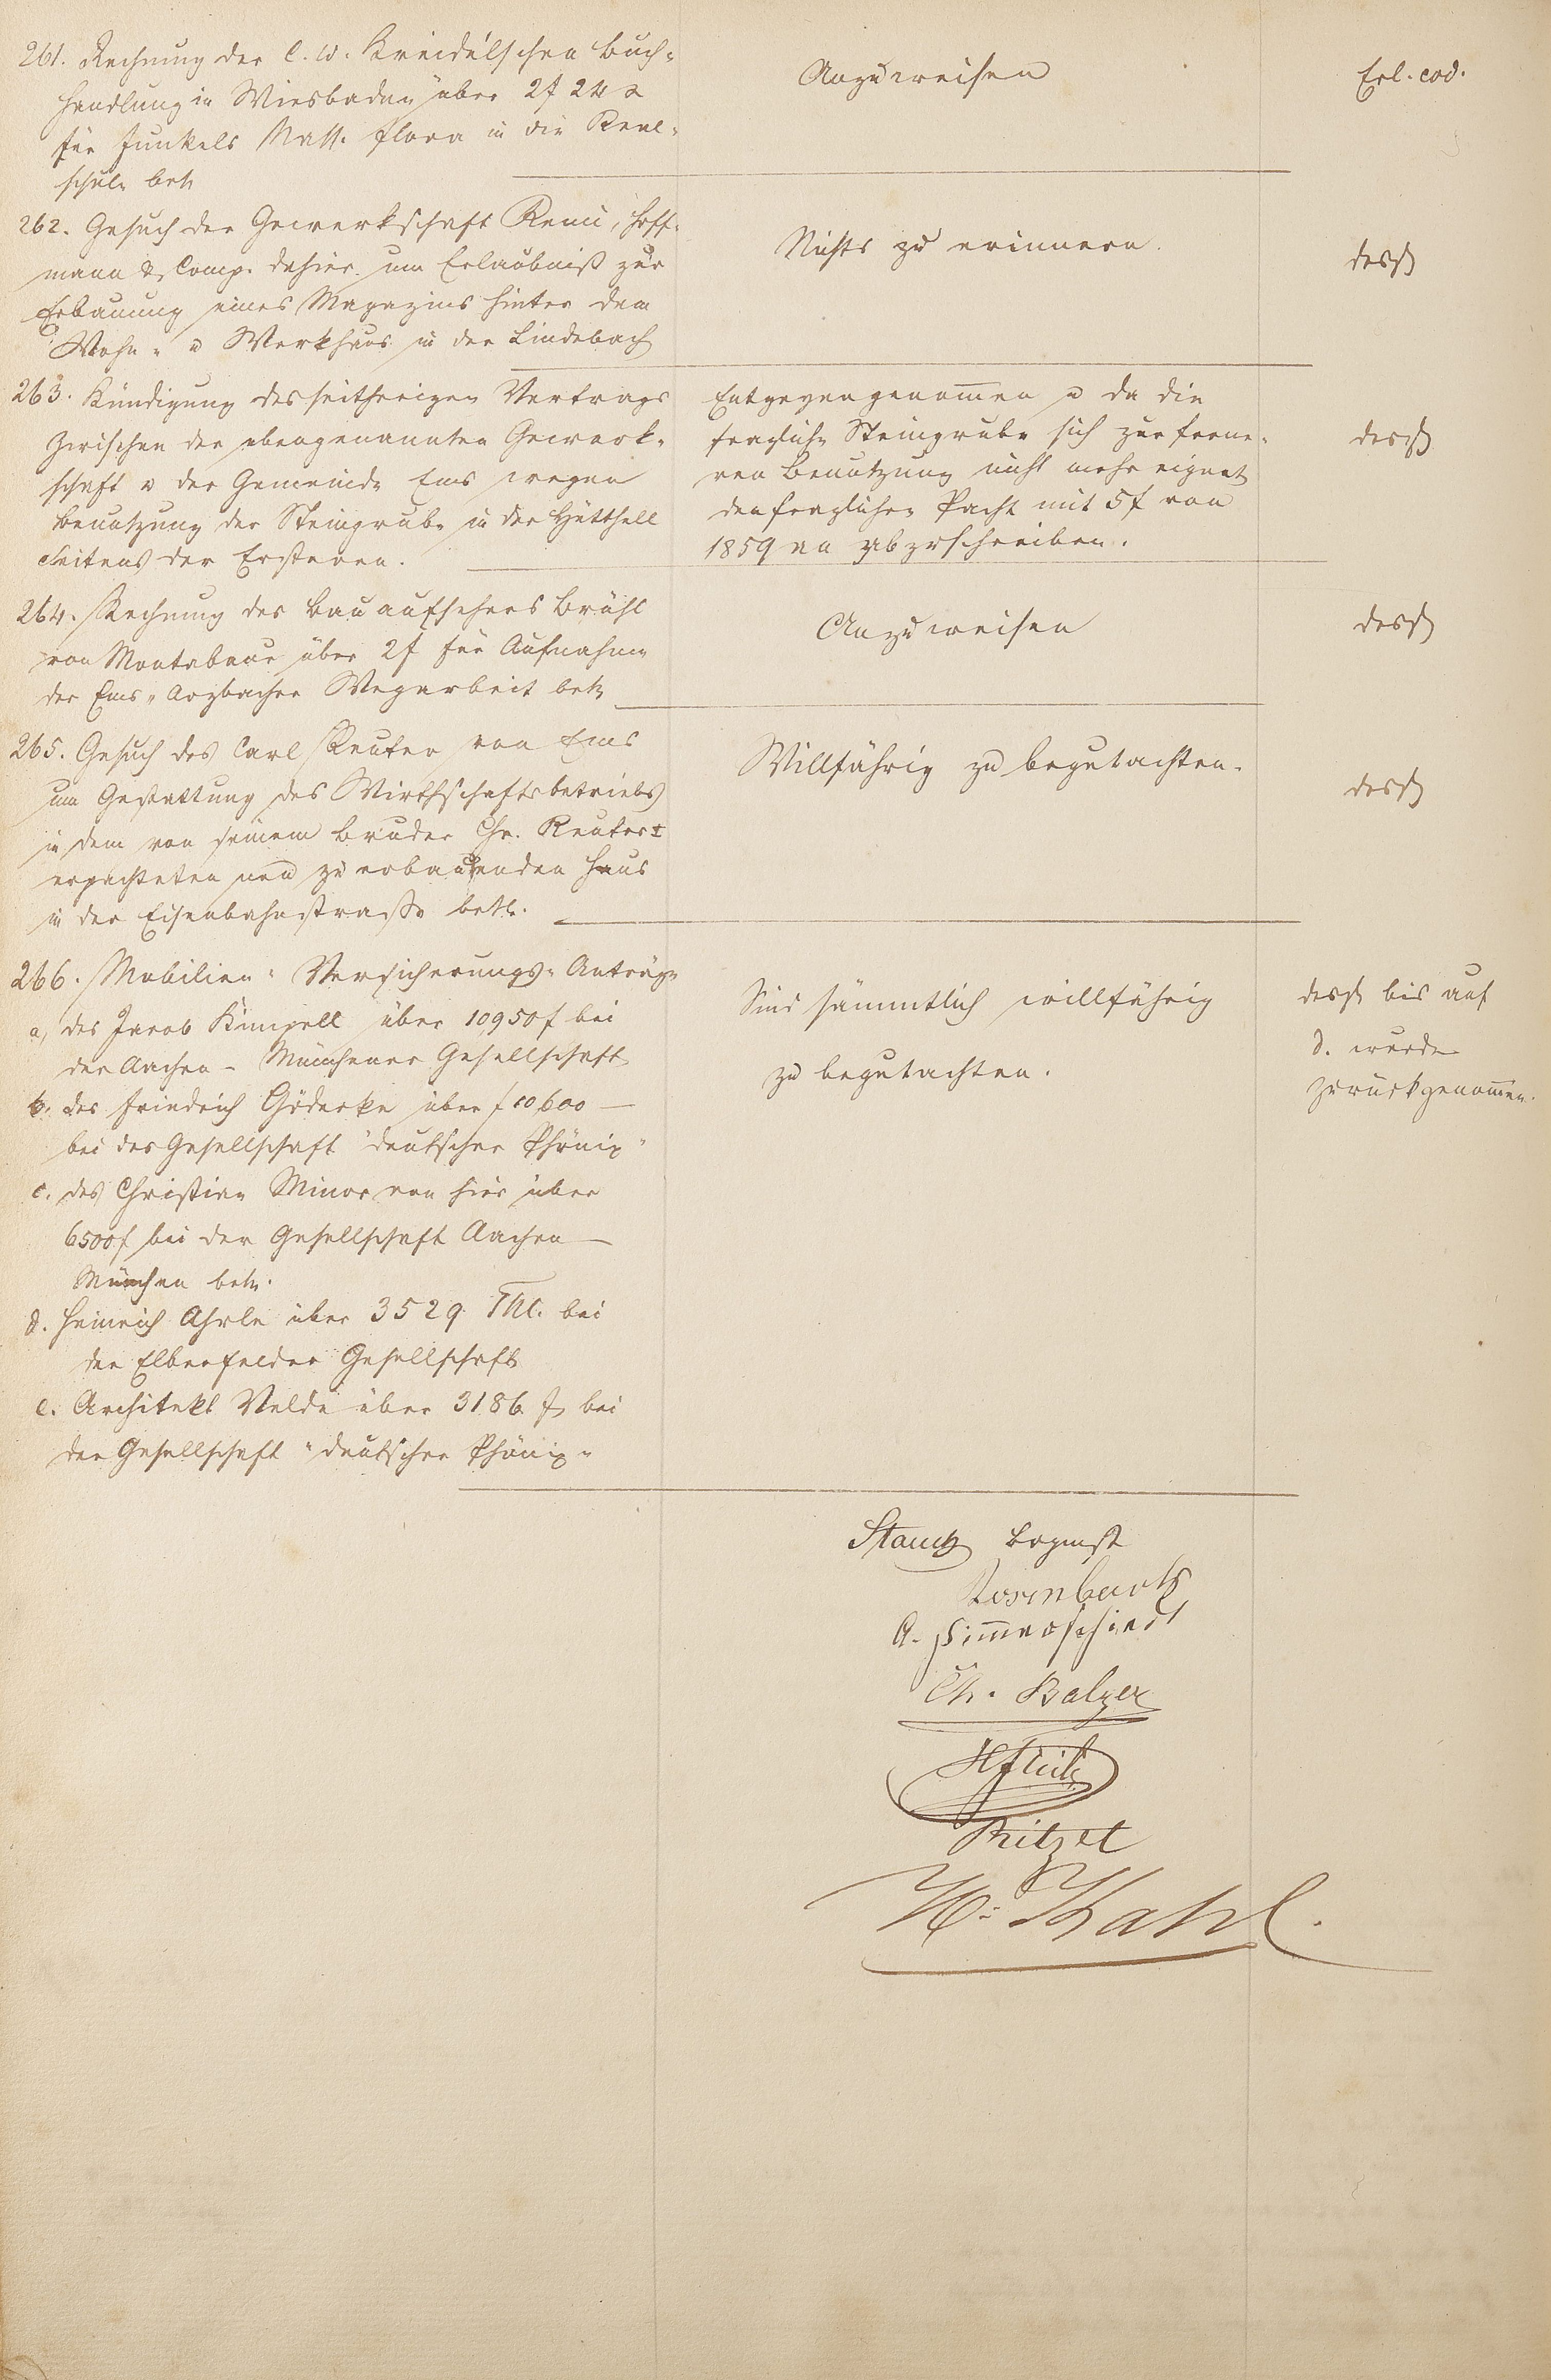 261. Rechnung der C. W. Kreidel'schen Buch-
handlung in Wiesbaden über 2f 24 x
für Junkels Nass. Flora in die Real-
schule betr.
Anzuweisen
Erl. eod.
262. Gesuch der Gewerkschaft Remi, Hoff-
mann & Comp. dahier um Erlaubniß zur
Erbauung eines Magazins hinter dem
Wohn- u Werkhaus in der Lindebach
Nichts zu erinnern.
desgl
263. Kündigung des seitherigen Vertrags
zwischen der obengenannten Gewerk-
schaft u der Gemeinde Ems wegen
Benutzung der Steingrube in der Hütthell
Seitens der Ersteren.
Entgegengenom̄en u da die
fragliche Steingrube sich zur ferne-
ren Benutzung nicht mehr eignet
den fraglichen Pacht mit 5f von
1859 an abzuschreiben.
desgl
264. Rechnung des Bauaufsehers Brühl
von Montabaur über 2f für Aufnahme
der Ems-Arzbacher Wegarbeit betr
Anzuweisen
desgl
265. Gesuch des Carl Reuter von Ems
um Gestattung des Wirthschaftsbetriebs
in dem von seinem Bruder Chr. Reuter
erpachteten neu zu erbauenden Haus
in der Eisenbahnstraße betr.
Willfährig zu begutachten.
desgl
266. Mobilien-Versicherungs-Anträge
a, des Jacob Küngell über 10950f bei
der Aachen-Münchener Gesellschaft
b. des Friedrich Gödecke über f 10600 —
bei der Gesellschaft "deutscher Phönix"
c. des Christian Minor von hier über
6500f bei der Gesellschaft Aachen —
München betr.
d. Heinrich Ahrle über 3529 Thl. bei
der Elberfelder Gesellschaft
e. Architekt Velde über 3186 f bei
der Gesellschaft "deutscher Phönix"
Sind sämmtlich willfährig
zu begutachten.
desgl bis auf
d. wurde
zurückgenom̄en.
Stauch Bgmst
Rosenbach
A. Sim̄erschied
Ch. Balzer
Pitzet
H. Kahl.